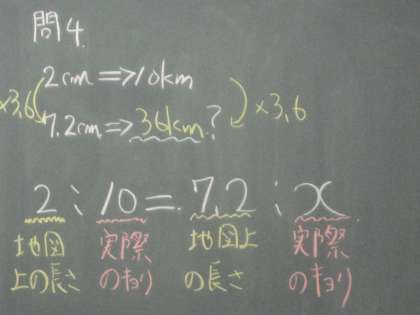 問4.
2cm⇒10km
×3.6 ×3.6
7.2cm⇒36km?
2:10=7.2:x
地図 実際 地図上 実際
上の長さ のキョリ の長さ のキョリ